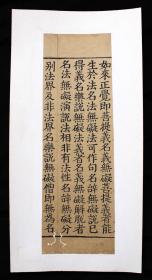 如來正覺即菩提義名義無礙菩提義者能
生於法名法無礙法可作句名辭無礙說已
得義名樂說無礙法義者名義無礙解脫者
名法無礙演說法相非有法性名辭無礙分
別法界及非法界名樂說無礙僧即無為名